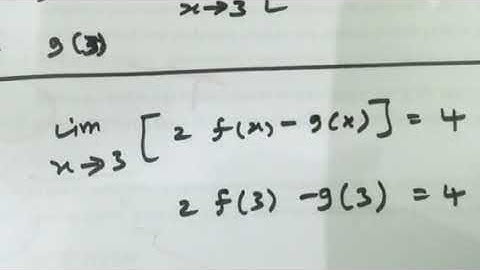 x→3 [
g(3)
Lim x→3 [2 f(x) - g(x)] = 4
2 f(3) - g(3) = 4